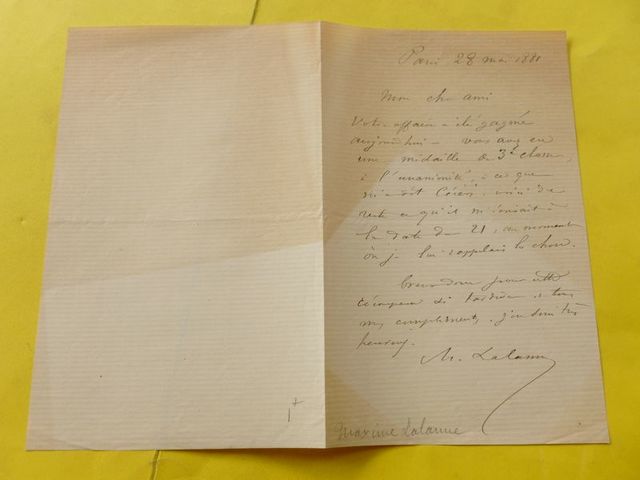 Paris 28 mai 1881
Mon cher ami
Votre affaire a été gagnée
aujourd'hui - vous avez eu
une médaille de 3e classe,
à l'unanimité, à ce que
m'a dit voici du
reste ce qu'il m'écrivait à
la date du 21, au moment
où je lui rappelais la chose.
Bravo donc pour cette
récompense si tardive et tous
mes compliments, j'en suis très
heureux.
M. Lalanne
1+
Maxime Lalanne